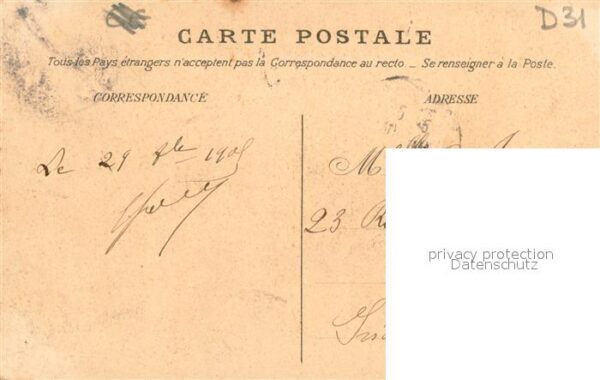 D31
CARTE POSTALE
Tous les Pays étrangers n'acceptent pas la Correspondance au recto _ Se renseigner à la Poste.
CORRESPONDANCE
ADRESSE
Le 29 1905
23
privacy protection
Datenschutz